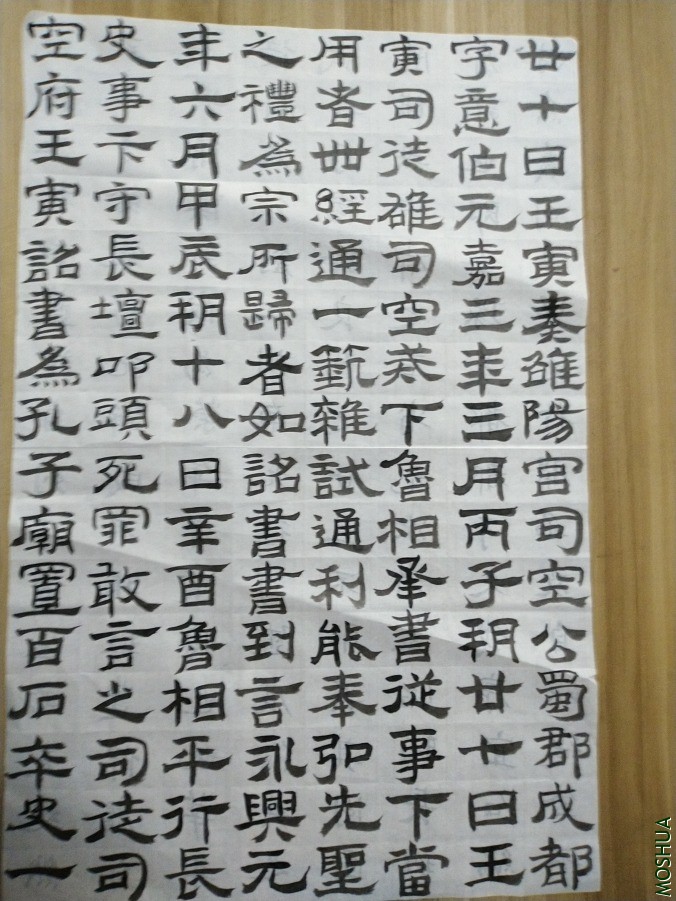 廿十日王寅奏雒陽宮司空公蜀郡成都
字意伯元嘉三年三月丙子朔廿十日王
寅司徒雄司空戒下魯相承書從事下當
用者卌經通一藝雜試通利能奉弘先聖
之禮為宗所歸者如詔書書到言永興元
年六月甲辰朔十八日辛酉魯相平行長
史事卞守長壇叩頭死罪敢言之司徒司
空府王寅詔書為孔子廟置百石卒史一
MOSHUA